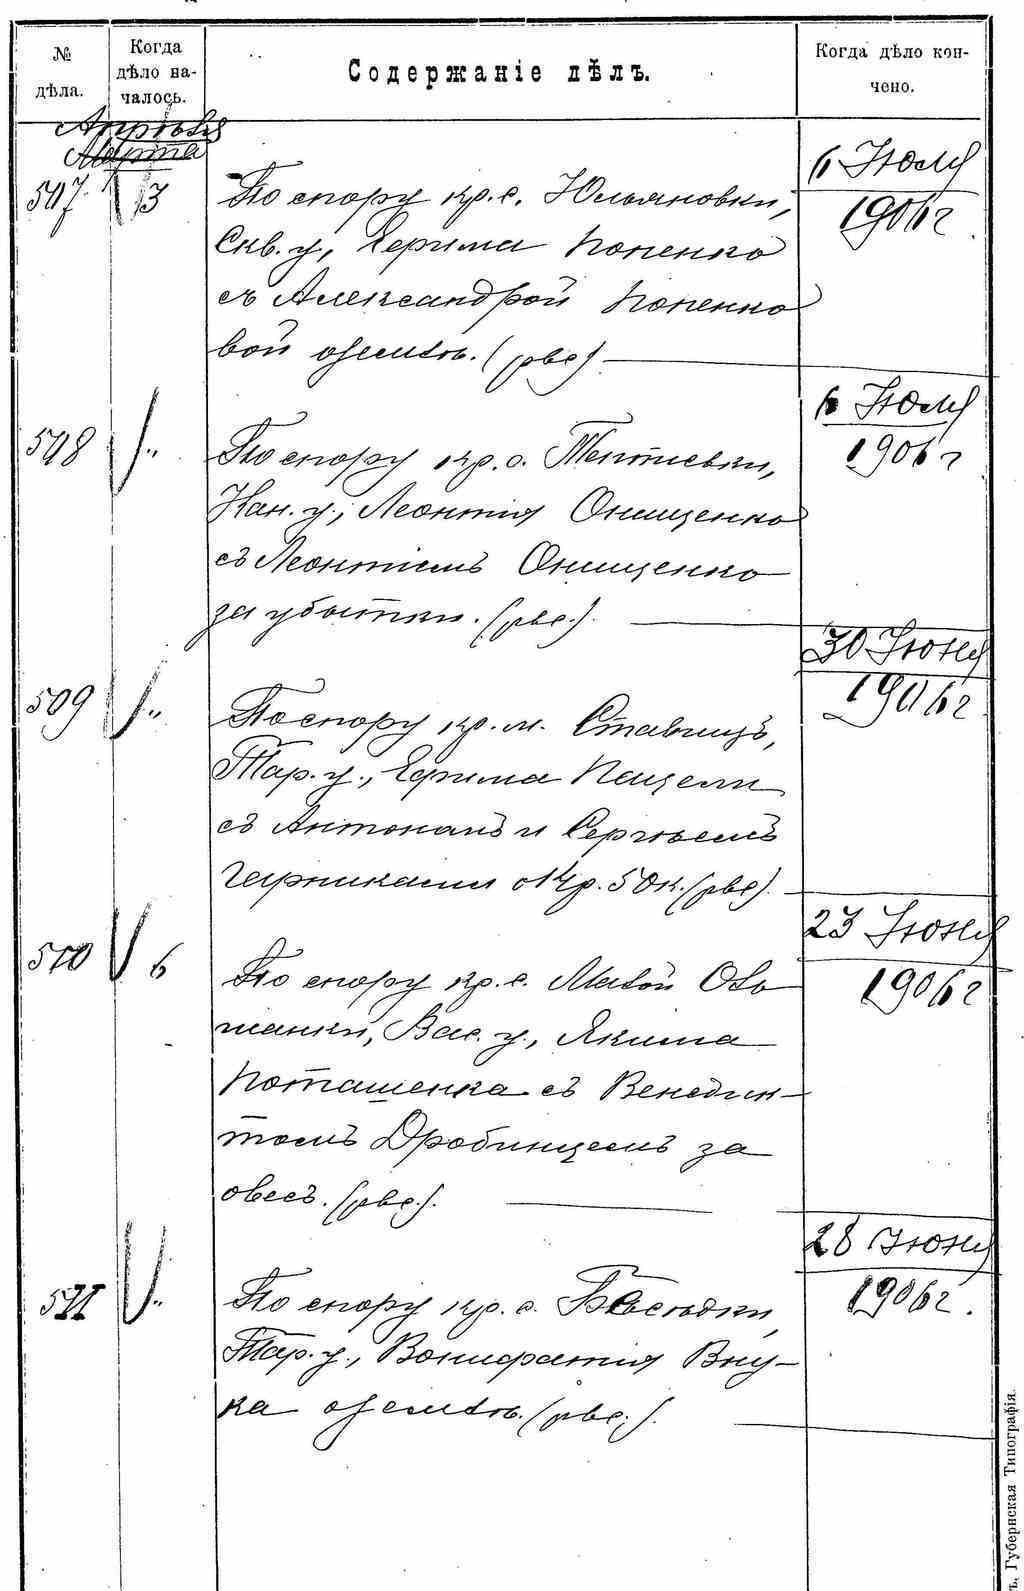 № дѣла.
Когда дѣло началось.
Содержаніе дѣлъ.
Когда дѣло кончено.
Апрѣля
Марта
507 3 По спору кр. с. Юльяновки,
Скв. у., Ефима Попенко
съ Александрой Попенко
вой о землѣ. (рвс).
6 Іюля
1906 г
508 „ По спору кр. с. Тептіевки,
Кан. у., Леонтія Онищенко
съ Леонтіемъ Онищенко
за убытки. (рвс.).
6 Іюля
1906 г
509 „ По спору кр. м. Ставищъ,
Тар. у., Ефима Пецели
съ Антономъ и Сергѣемъ
о 14 р. 50 к. (рвс).
30 Іюня
1906 г.
510 6 По спору кр. с. Малой Оль
шанки, Вас. у., Якима
Поташенка съ Венедик-
томъ Дробинцемъ за
овесъ. (рвс.).
23 Іюня
1906 г
511 „ По спору кр. с. Бесѣдки,
Тар. у., Вонифатія Вну-
ка о землѣ. (рвс.).
28 Іюня
1906 г.
Губернская Типографія.